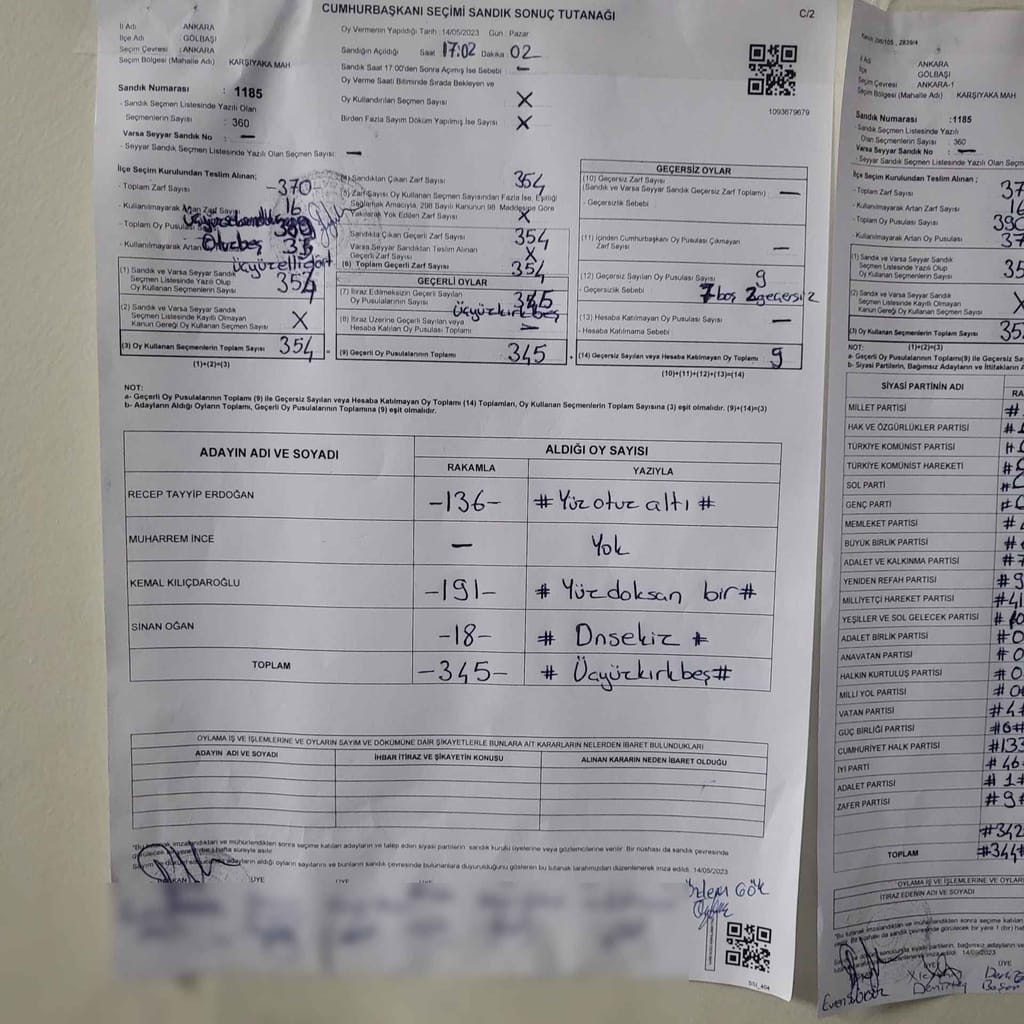 CUMHURBAŞKANI SEÇİMİ SANDIK SONUÇ TUTANAĞI
C/2
İl Adı ANKARA
İlçe Adı GÖLBAŞI
Seçim Çevresi : ANKARA
Seçim Bölgesi (Mahalle Adı) KARŞIYAKA MAH
Oy Vermenin Yapıldığı Tarih : 14/05/2023 Gün : Pazar
Sandığın Açıldığı Saat 17:02 Dakika 02
Sandık Saat 17:00'den Sonra Açımış İse Sebebi —
Oy Verme Saati Bitiminde Sırada Bekleyen ve
Oy Kullandırılan Seçmen Sayısı X
Birden Fazla Sayım Döküm Yapılmış İse Sayısı X
1093679679
Sandık Numarası : 1185
- Sandık Seçmen Listesinde Yazılı Olan
Seçmenlerin Sayısı : 360
Varsa Seyyar Sandık No : —
- Seyyar Sandık Listesinde Yazılı Olan Seçmen Sayısı: —
İlçe Seçim Kurulundan Teslim Alınan;
- Toplam Zarf Sayısı -370-
- Kullanılmayarak Artan Zarf Sayısı 16
- Toplam Oy Pusulası
- Kullanılmayarak Artan Otuzbeş 35
Üçyüzellidört
(1) Sandık ve Varsa Seyyar Sandık
Seçmen Listesinde Yazılı Olup
Oy Kullanan Seçmen Sayısı 354
(2) Sandık ve Varsa Seyyar Sandık
Seçmen Listesinde Kayıtlı Olmayan
Kanun Gereği Oy Kullanan Seçmen Sayısı X
(3) Oy Kullanan Seçmenlerin Toplam Sayısı 354
(1)+(2)=(3)
(4) Sandıktan Çıkan Zarf Sayısı 354
(5) Zarf Sayısı Oy Kullanan Seçmen Sayısından Fazla İse, Eşitliği
Sağlamak Amacıyla, 298 Sayılı Kanunun 98. Maddesine Göre
Yakılarak Yok Edilen Zarf Sayısı X
Sandıkta Çıkan Geçerli Zarf Sayısı 354
Varsa Seyyar Sandıktan Teslim Alınan
Geçerli Zarf Sayısı X
(6) Toplam Geçerli Zarf Sayısı 354
GEÇERLİ OYLAR
(7) İtiraz Edilmeksizin Geçerli Sayılan
Oy Pusulasının Sayısı 345
Üçyüzkırkbeş
(8) İtiraz Üzerine Geçerli Sayılan veya
Hesaba Katılan Oy Pusulası Toplamı —
(9) Geçerli Oy Pusulalarının Toplamı 345
GEÇERSİZ OYLAR
(10) Geçersiz Zarf Sayısı
(Sandık ve Varsa Seyyar Sandık Geçersiz Zarf Toplamı) —
- Geçersizlik Sebebi
(11) İçinden Cumhurbaşkanı Oy Pusulası Çıkmayan
Zarf Sayısı —
(12) Geçersiz Sayılan Oy Pusulası Sayısı 9
- Geçersizlik Sebebi 7 boş 2 geçersiz
(13) Hesaba Katılmayan Oy Pusulası Sayısı —
- Hesaba Katılmama Sebebi
(14) Geçersiz Sayılan veya Hesaba Katılmayan Oy Toplamı 9
(10)+(11)+(12)+(13)=(14)
NOT:
a- Geçerli Oy Pusulalarının Toplamı (9) ile Geçersiz Sayılan veya Hesaba Katılmayan Oy Toplamı (14) Toplamları, Oy Kullanan Seçmenlerin Toplam Sayısına (3) eşit olmalıdır. (9)+(14)=(3)
b- Adayların Aldığı Oyların Toplamı, Geçerli Oy Pusulalarının Toplamına (9) eşit olmalıdır.
ADAYIN ADI VE SOYADI
ALDIĞI OY SAYISI
RAKAMLA YAZIYLA
RECEP TAYYİP ERDOĞAN -136- # Yüz otuz altı #
MUHARREM İNCE — Yok
KEMAL KILIÇDAROĞLU -191- # Yüzdoksan bir #
SİNAN OĞAN -18- # Onsekiz #
TOPLAM -345- # Üçyüzkırkbeş #
OYLAMA İŞ VE İŞLEMLERİNE VE OYLARIN SAYIM VE DÖKÜMÜNE DAİR ŞİKAYETLERLE BUNLARA AİT KARARLARIN NELERDEN İBARET BULUNDUKLARI
ADAYIN ADI VE SOYADI İHBAR İTİRAZ VE ŞİKAYETİN KONUSU ALINAN KARARIN NEDEN İBARET OLDUĞU
14/05/2023
ÜYE
Özlem GÖK
SSİ_404
İl Adı : ANKARA
İlçe : GÖLBAŞI
Seçim Çevresi : ANKARA-1
Seçim Bölgesi (Mahalle Adı) : KARŞIYAKA MAH
Sandık Numarası :1185
- Sandık Seçmen Listesinde Yazılı
Olan Seçmenlerin Sayısı : 360
Varsa Seyyar Sandık No : —
- Seyyar Sandık Listesinde Yazılı Olan Seçm
İlçe Seçim Kurulundan Teslim Alınan ;
- Toplam Zarf Sayısı 37
- Kullanılmayarak Artan Zarf Sayısı 16
- Toplam Oy Pusulası Sayısı
- Kullanılmayarak Artan Oy Pusulası 37
(1) Sandık ve Varsa Seyyar Sandık
Seçmen Listesinde Yazılı Olup
Oy Kullanan Seçmen Sayısı 35
(2) Sandık ve Varsa Seyyar Sandık
Seçmen Listesinde Kayıtlı Olmayan
Kanun Gereği Oy Kullanan Seçmen Sayısı
(3) Oy Kullanan Seçmenlerin Toplam Sayısı 35
NOT: (1)+(2)=(3)
a- Geçerli Oy Pusulalarının Toplamı(9) ile Geçersiz Sa
b- Siyasi Partilerin, Bağımsız Adayların ve İttifakların A
SİYASİ PARTİNİN ADI RA
MİLLET PARTİSİ #
HAK VE ÖZGÜRLÜKLER PARTİSİ #
TÜRKİYE KOMÜNİST PARTİSİ #
TÜRKİYE KOMÜNİST HAREKETİ #
SOL PARTİ #
GENÇ PARTİ #
MEMLEKET PARTİSİ #
BÜYÜK BİRLİK PARTİSİ #
ADALET VE KALKINMA PARTİSİ #7
YENİDEN REFAH PARTİSİ #9
MİLLİYETÇİ HAREKET PARTİSİ #41
YEŞİLLER VE SOL GELECEK PARTİSİ #
ADALET BİRLİK PARTİSİ #0
ANAVATAN PARTİSİ #0
HALKIN KURTULUŞ PARTİSİ #0
MİLLİ YOL PARTİSİ #0
VATAN PARTİSİ #4
GÜÇ BİRLİĞİ PARTİSİ #0#
CUMHURİYET HALK PARTİSİ #133
İYİ PARTİ #46
ADALET PARTİSİ #1#
ZAFER PARTİSİ #9#
#342
TOPLAM #344#
OYLAMA İŞ VE İŞLEMLERİNE VE OYLARI
İTİRAZ EDENİN ADI VE SOYADI
14/05/2023
ÜYE